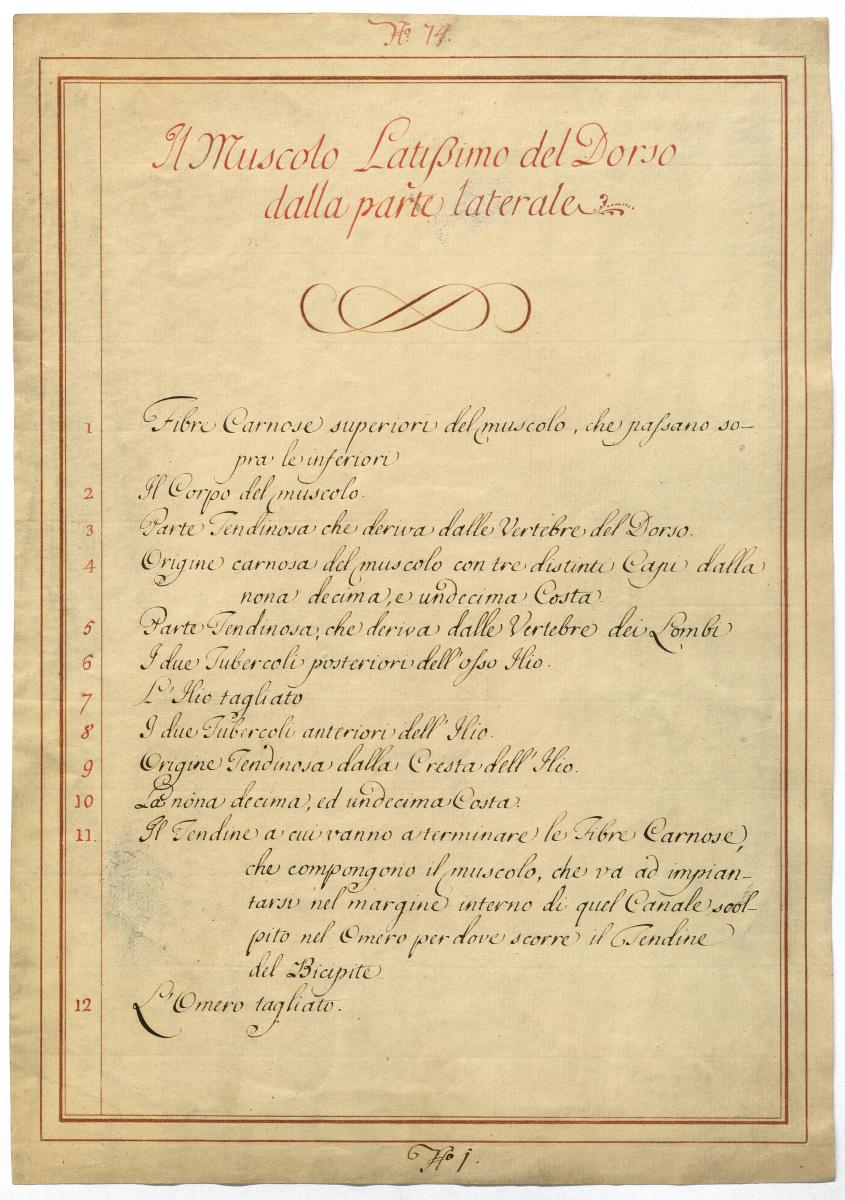 N.º 74.
Il Muscolo Latißimo del Dorso
dalla parte laterale
1 Fibre Carnose superiori del muscolo, che paſsano so-
pra le inferiori
2 Il Corpo del muscolo.
3 Parte Tendinosa che deriva dalle Vertebre del Dorso.
4 Origine carnosa del muscolo con tre distinti Capi dalla
nona decima, e undecima Costa.
5 Parte Tendinosa, che deriva dalle Vertebre dei Lombi
6 I due Tubercoli posteriori dell'oſso Ilio.
7 L'Ilio tagliato
8 I due Tubercoli anteriori dell'Ilio.
9 Origine Tendinosa dalla Cresta dell'Ilio.
10 La nona decima, ed undecima Costa.
11. Il Tendine a cui vanno a terminare le Fibre Carnose,
che compongono il muscolo, che va ad impian-
tarsi nel margine interno di quel Canale scol-
pito nel Omero per dove scorre il Tendine
del Bicipite.
12 L'Omero tagliato.
Nº 1.